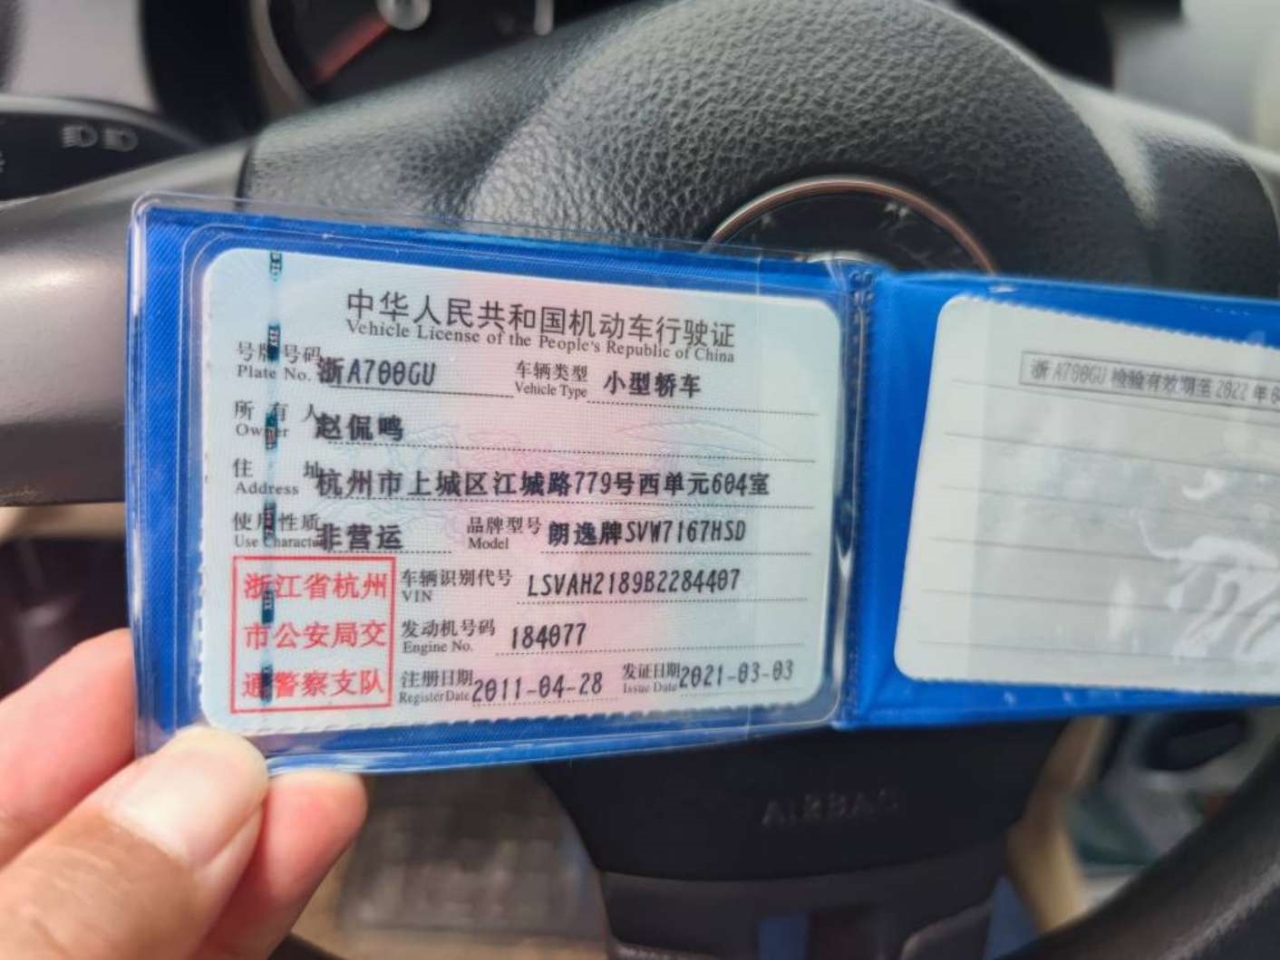 中华人民共和国机动车行驶证
Vehicle License of the People's Republic of China
号牌号码 浙A700GU 车辆类型 小型轿车
Plate No. Vehicle Type
所有人 赵侃鸣
Owner
住址 杭州市上城区江城路779号西单元604室
Address
使用性质 非营运 品牌型号 朗逸牌SVW7167HSD
Use Character Model
浙江省杭州
市公安局交
通警察支队
车辆识别代号 LSVAH2189B2284407
VIN
发动机号码 184077
Engine No.
注册日期 2011-04-28 发证日期 2021-03-03
Register Date Issue Date
浙A700GU 检验有效期至 2022年
AIRBAG